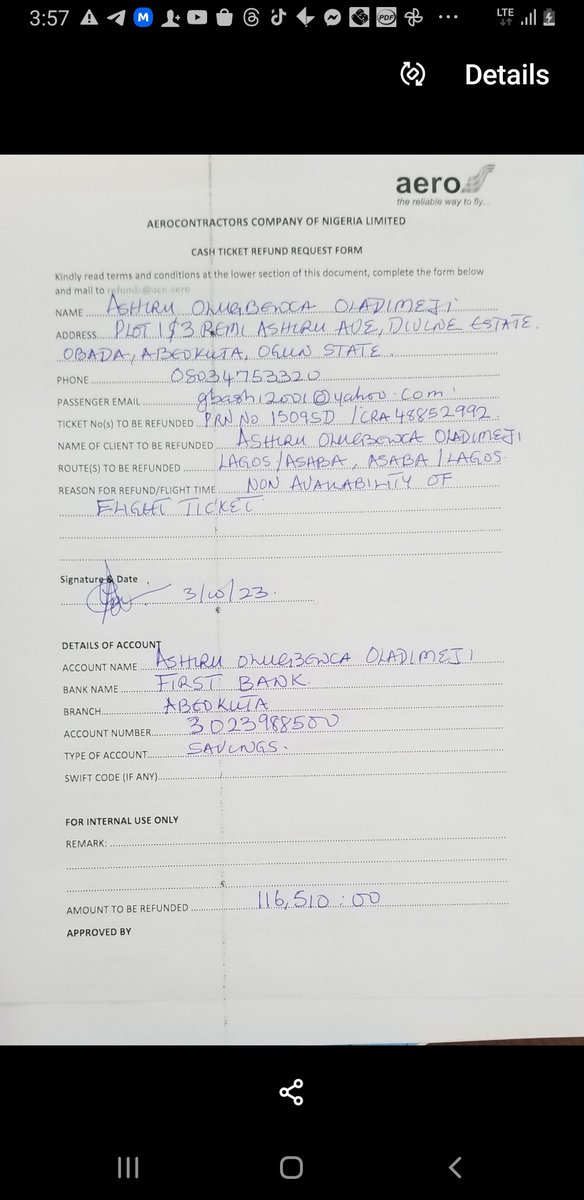 3:57
LTE
Details
aero
the reliable way to fly...
AEROCONTRACTORS COMPANY OF NIGERIA LIMITED
CASH TICKET REFUND REQUEST FORM
Kindly read terms and conditions at the lower section of this document, complete the form below
and mail to refunds@acn.aero
NAME ASHIRU OLUGBENGA OLADIMEJI
ADDRESS PLOT 1$3 REMI ASHIRU AVE, DIVINE ESTATE.
OBADA, ABEOKUTA, OGUN STATE.
PHONE 08034753320
PASSENGER EMAIL gbashi2001@yahoo.com
TICKET No(s) TO BE REFUNDED PRN NO 1509SD /CRA 48852992
NAME OF CLIENT TO BE REFUNDED ASHIRU OLUGBENGA OLADIMEJI
ROUTE(S) TO BE REFUNDED LAGOS/ASABA, ASABA/LAGOS.
REASON FOR REFUND/FLIGHT TIME NON AVAILABILITY OF
FLIGHT TICKET
Signature & Date
3/10/23.
DETAILS OF ACCOUNT
ACCOUNT NAME ASHIRU OLUGBENGA OLADIMEJI
BANK NAME FIRST BANK.
BRANCH ABEOKUTA
ACCOUNT NUMBER 3023988500
TYPE OF ACCOUNT SAVINGS.
SWIFT CODE (IF ANY)
FOR INTERNAL USE ONLY
REMARK:
AMOUNT TO BE REFUNDED 116,510:00
APPROVED BY